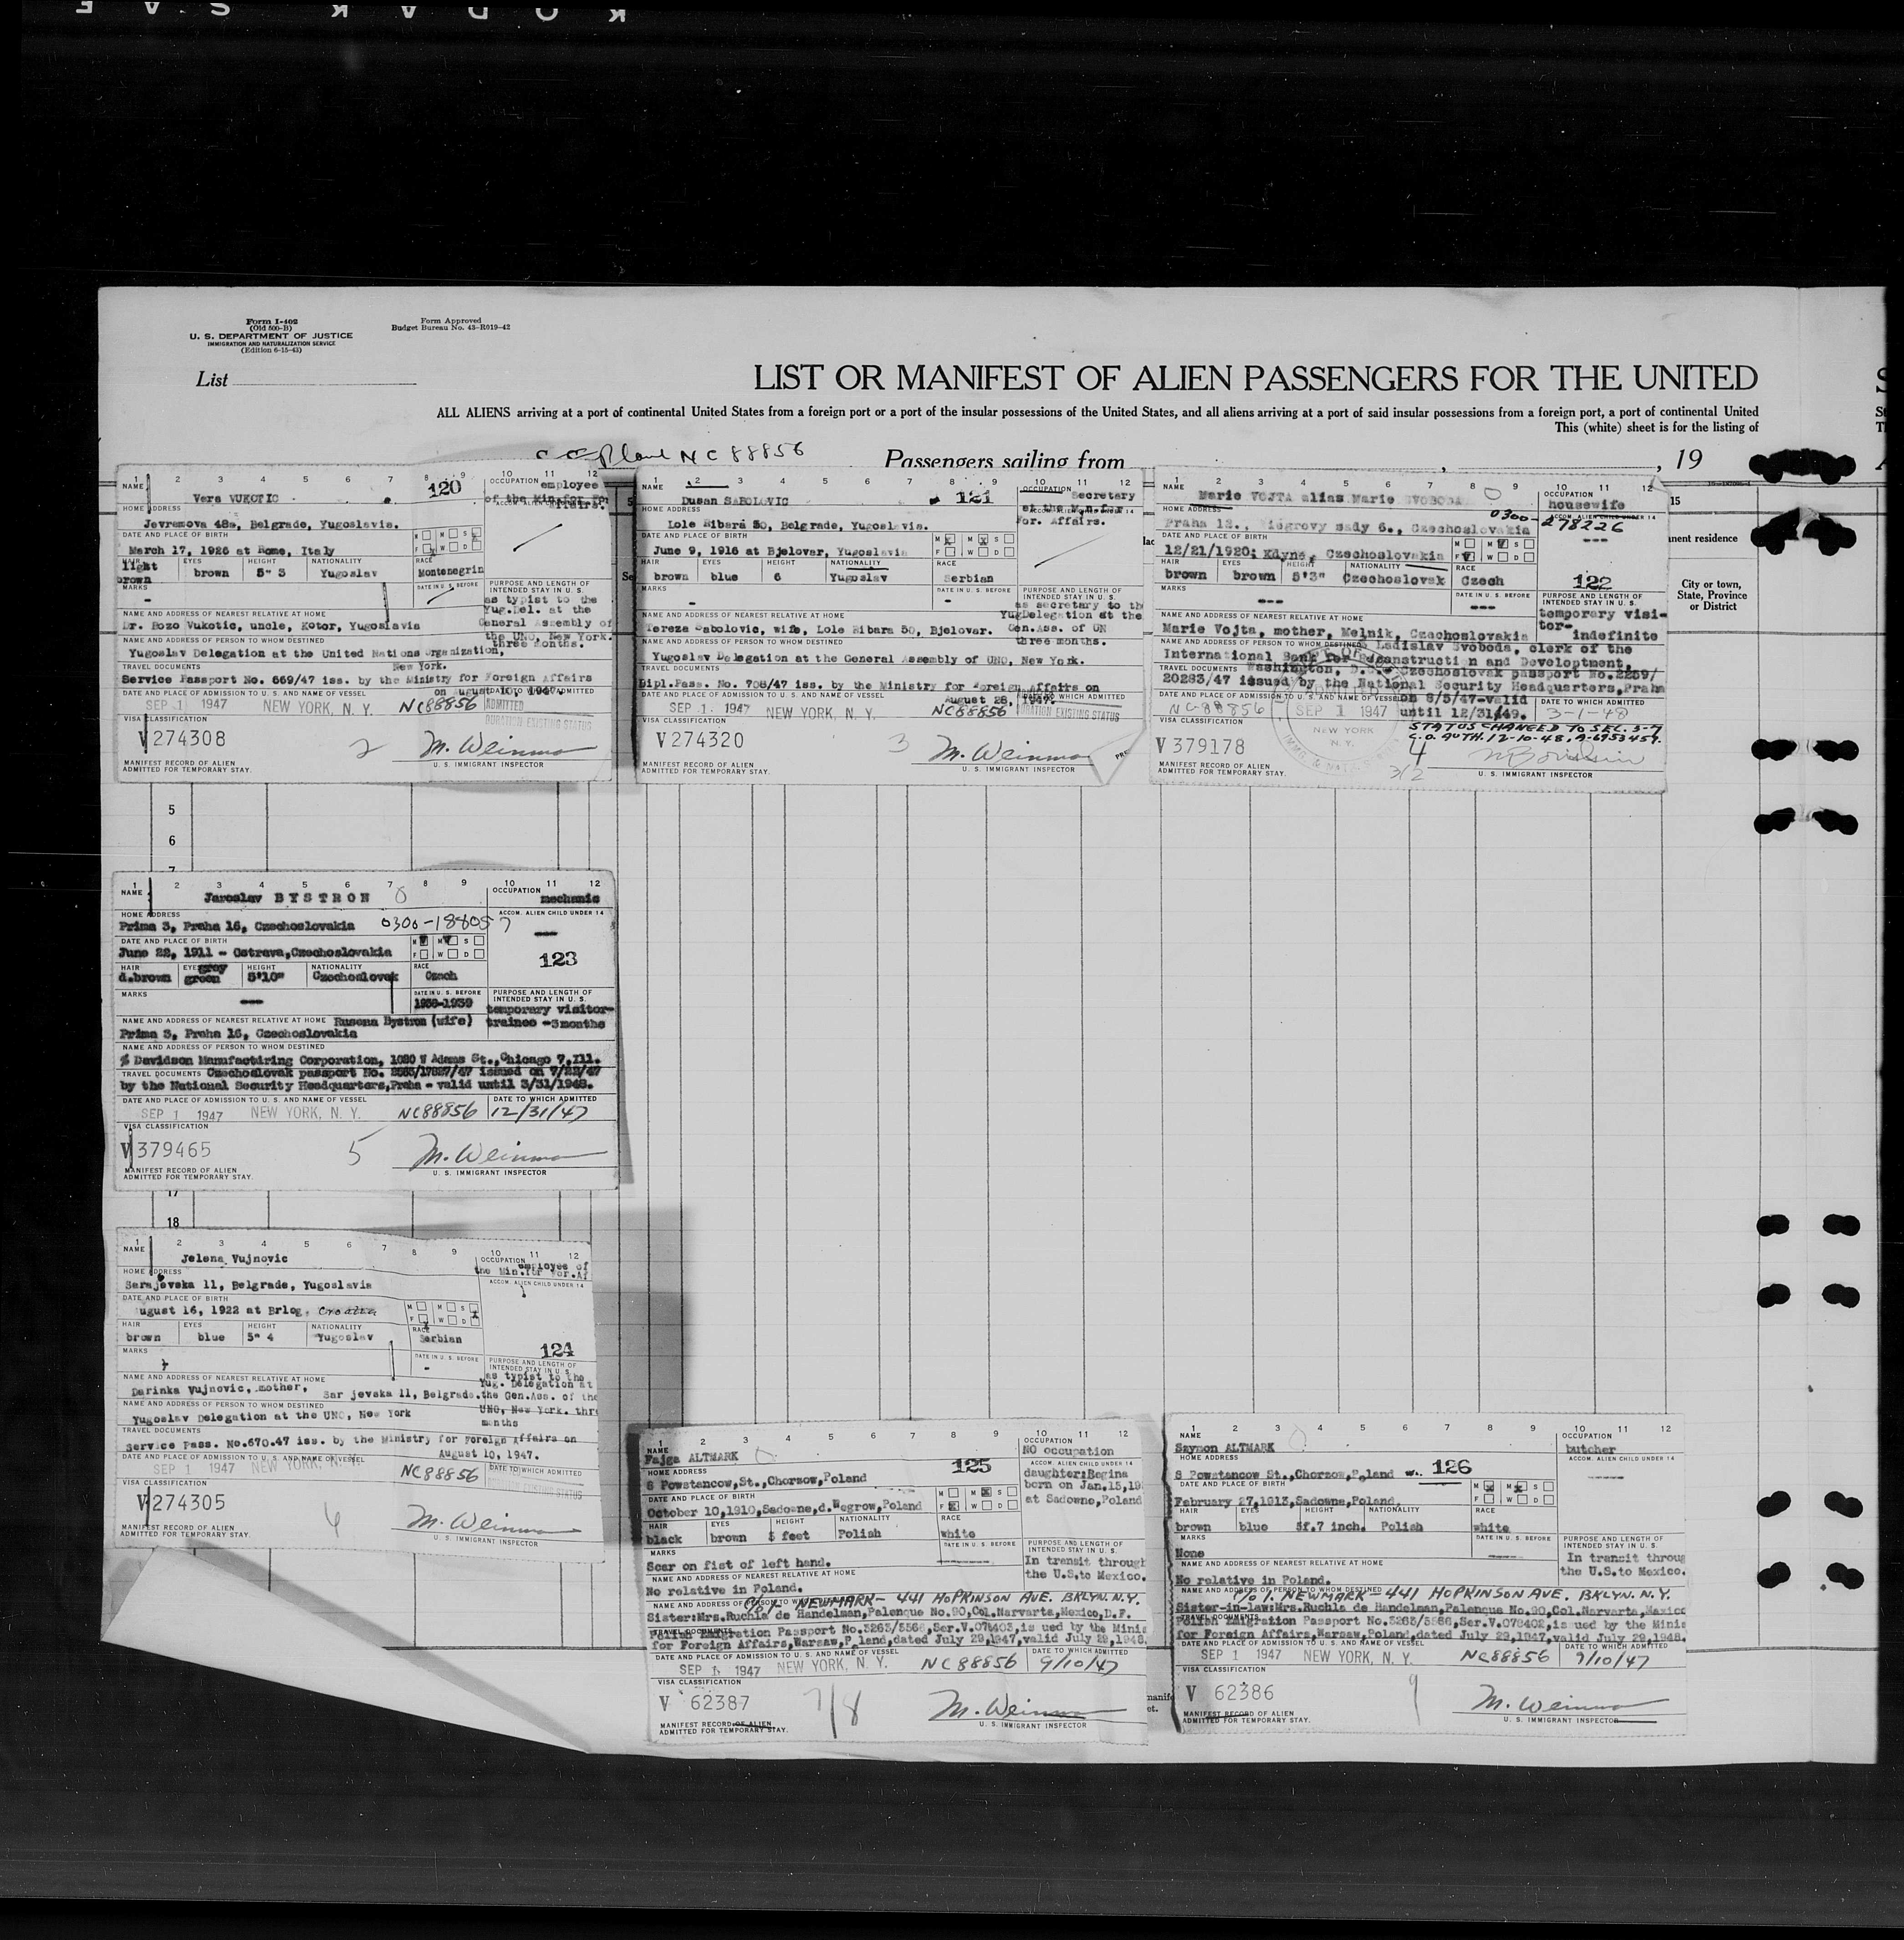 Form I-402
(Old 500-B)
U. S. DEPARTMENT OF JUSTICE
IMMIGRATION AND NATURALIZATION SERVICE
(Edition 6-15-43)
Form Approved
Budget Bureau No. 43-R019-42
List
LIST OR MANIFEST OF ALIEN PASSENGERS FOR THE UNITED
ALL ALIENS arriving at a port of continental United States from a foreign port or a port of the insular possessions of the United States, and all aliens arriving at a port of said insular possessions from a foreign port, a port of continental United
This (white) sheet is for the listing of
Plane NC88856
Passengers sailing from , , 19
1 2 3 4 5 6 7 8 9 10 11 12
NAME Vera VUKOTIC 120
OCCUPATION employee
of the Min. for Fo.
Affairs.
HOME ADDRESS
Jevremova 48a, Belgrade, Yugoslavia.
DATE AND PLACE OF BIRTH
March 17, 1926 at Rome, Italy
M M S
F W D
HAIR EYES HEIGHT NATIONALITY RACE
light brown brown 5" 3 Yugoslav Montenegrin
MARKS DATE IN U. S. BEFORE
-
PURPOSE AND LENGTH OF
INTENDED STAY IN U. S.
as typist to the
Yug.Del. at the
General Assembly of
the UNO, New York.
three months.
NAME AND ADDRESS OF NEAREST RELATIVE AT HOME
Dr. Bozo Vukotic, uncle, Kotor, Yugoslavia
NAME AND ADDRESS OF PERSON TO WHOM DESTINED
Yugoslav Delegation at the United Nations Organization,
New York.
TRAVEL DOCUMENTS
Service Passport No. 669/47 iss. by the Ministry for Foreign Affairs
on August 10, 1947.
DATE AND PLACE OF ADMISSION TO U. S. AND NAME OF VESSEL
SEP 1 1947 NEW YORK, N. Y. NC88856
ADMITTED
DURATION EXISTING STATUS
VISA CLASSIFICATION
V 274308 2 M. Weinman
U. S. IMMIGRANT INSPECTOR
MANIFEST RECORD OF ALIEN
ADMITTED FOR TEMPORARY STAY.
1 2 3 4 5 6 7 8 9 10 11 12
NAME Dusan SABOLOVIC 121
OCCUPATION Secretary
of the Min.for
For. Affairs.
HOME ADDRESS
Lole Ribara 50, Belgrade, Yugoslavia.
DATE AND PLACE OF BIRTH
June 9, 1916 at Bjelovar, Yugoslavia
M M S
F W D
HAIR EYES HEIGHT NATIONALITY RACE
brown blue 6 Yugoslav Serbian
MARKS DATE IN U. S. BEFORE
- -
PURPOSE AND LENGTH OF
INTENDED STAY IN U. S.
as secretary to th
YugDelegation at the
Gen.Ass. of UN
three months.
NAME AND ADDRESS OF NEAREST RELATIVE AT HOME
Tereza Sabolovic, wife, Lole Ribara 50, Bjelovar.
NAME AND ADDRESS OF PERSON TO WHOM DESTINED
Yugoslav Delegation at the General Assembly of UNO, New York.
TRAVEL DOCUMENTS
Dipl.Pass. No. 708/47 iss. by the Ministry for Foreign Affairs on
August 28, 1947.
DATE AND PLACE OF ADMISSION TO U. S. AND NAME OF VESSEL
SEP 1 1947 NEW YORK, N. Y. NC88856
DURATION EXISTING STATUS
VISA CLASSIFICATION
V 274320 3 M. Weinman
U. S. IMMIGRANT INSPECTOR
MANIFEST RECORD OF ALIEN
ADMITTED FOR TEMPORARY STAY.
1 2 3 4 5 6 7 8 9 10 11 12
NAME Marie VOJTA alias Marie SVOBODA
OCCUPATION
housewife
0300-278226
ACCOM. ALIEN CHILD UNDER 14
---
HOME ADDRESS
Praha 12., Riegrovy sady 6., Czechoslovakia
DATE AND PLACE OF BIRTH
12/21/1920; Kdyne, Czechoslovakia
M M S
F W D
HAIR EYES HEIGHT NATIONALITY RACE
brown brown 5'3" Czechoslovak Czech 122
MARKS DATE IN U. S. BEFORE
--- ---
PURPOSE AND LENGTH OF
INTENDED STAY IN U. S.
temporary visi-
tor-
indefinite
NAME AND ADDRESS OF NEAREST RELATIVE AT HOME
Marie Vojta, mother, Melnik, Czechoslovakia
NAME AND ADDRESS OF PERSON TO WHOM DESTINED Ladislav Svoboda, clerk of the
International Bank for Reconstruction and Development,
TRAVEL DOCUMENTS Washington, D.C. Czechoslovak passport No.2259/
20283/47 issued by the National Security Headquarters,Praha
on 8/5/47-valid
until 12/31/49.
DATE AND PLACE OF ADMISSION TO U. S. AND NAME OF VESSEL
DATE TO WHICH ADMITTED
NC-88856 SEP 1 1947 3-1-48
NEW YORK
N. Y.
STATUS CHANGED TO SEC. 3-7
C.O. AUTH. 12-10-48. A-6953459.
VISA CLASSIFICATION
V 379178 4
312
U. S. IMMIGRANT INSPECTOR
MANIFEST RECORD OF ALIEN
ADMITTED FOR TEMPORARY STAY.
15
nent residence
City or town,
State, Province
or District
5
6
7
1 2 3 4 5 6 7 8 9 10 11 12
NAME Jaroslav BYSTRON
OCCUPATION
mechanic
HOME ADDRESS
Prima 3, Praha 16, Czechoslovakia 0300-188057
ACCOM. ALIEN CHILD UNDER 14
---
DATE AND PLACE OF BIRTH
June 22, 1911 - Ostrava,Czechoslovakia
M M S
F W D
123
HAIR EYES HEIGHT NATIONALITY RACE
d.brown gray green 5'10" Czechoslovak Czech
MARKS DATE IN U. S. BEFORE
--- 1938-1939
PURPOSE AND LENGTH OF
INTENDED STAY IN U. S.
temporary visitor-
trainee -3months
NAME AND ADDRESS OF NEAREST RELATIVE AT HOME Rusena Bystron (wife)
Prima 3, Praha 16, Czechoslovakia
NAME AND ADDRESS OF PERSON TO WHOM DESTINED
% Davidson Manufactiring Corporation, 1020 W Adams St.,Chicago 7,Ill.
TRAVEL DOCUMENTS Czechoslovak passport No. issued on 7/22/47
by the National Security Headquarters,Praha - valid until 3/31/1948.
DATE AND PLACE OF ADMISSION TO U. S. AND NAME OF VESSEL
DATE TO WHICH ADMITTED
SEP 1 1947 NEW YORK, N. Y. NC88856 12/31/47
VISA CLASSIFICATION
V 379465 5 M. Weinman
U. S. IMMIGRANT INSPECTOR
MANIFEST RECORD OF ALIEN
ADMITTED FOR TEMPORARY STAY.
17
18
1 2 3 4 5 6 7 8 9 10 11 12
NAME Jelena Vujnovic
OCCUPATION employee of
the Min.for For.Af
HOME ADDRESS
Sarajevska 11, Belgrade, Yugoslavia
ACCOM. ALIEN CHILD UNDER 14
DATE AND PLACE OF BIRTH
ugust 16, 1922 at Brlog, Croatia
M M S
F W D
HAIR EYES HEIGHT NATIONALITY RACE
brown blue 5" 4 Yugoslav Serbian
124
MARKS DATE IN U. S. BEFORE
-
PURPOSE AND LENGTH OF
INTENDED STAY IN U. S.
as typist to the
Yug. Delegation at
the Gen.Ass. of the
UNO, New York. thre
months
NAME AND ADDRESS OF NEAREST RELATIVE AT HOME
Darinka Vujnovic, mother, Sar jevska 11, Belgrade.
NAME AND ADDRESS OF PERSON TO WHOM DESTINED
Yugoslav Delegation at the UNO, New York
TRAVEL DOCUMENTS
Service Pass. No.670.47 iss. by the Ministry for Foreign Affairs on
August 10, 1947.
DATE AND PLACE OF ADMISSION TO U. S. AND NAME OF VESSEL
SEP 1 1947 NEW YORK, N. Y. NC88856
DATE TO WHICH ADMITTED
VISA CLASSIFICATION
V 274305 4 M. Weinman
U. S. IMMIGRANT INSPECTOR
MANIFEST RECORD OF ALIEN
ADMITTED FOR TEMPORARY STAY.
1 2 3 4 5 6 7 8 9 10 11 12
NAME
Fajga ALTMARK
OCCUPATION
NO occupation
HOME ADDRESS
8 Powstancow,St.,Chorzow,Poland 125
ACCOM. ALIEN CHILD UNDER 14
daughter:Regina
born on Jan.15,19
at Sadowno,Poland
DATE AND PLACE OF BIRTH
October 10,1910,Sadowne,d.Wegrow,Poland
M M S
F W D
HAIR EYES HEIGHT NATIONALITY RACE
black brown 5 feet Polish white
MARKS DATE IN U. S. BEFORE
Scar on fist of left hand.
PURPOSE AND LENGTH OF
INTENDED STAY IN U. S.
In transit through
the U.S.to Mexico.
NAME AND ADDRESS OF NEAREST RELATIVE AT HOME
No relative in Poland.
NAME AND ADDRESS OF PERSON TO WHOM DESTINED
NEWMARK- 441 HOPKINSON AVE. BKLYN. N.Y.
Sister:Mrs.Ruchla de Handelman,Palenque No.90,Col.Narvarta,Mexico,D.F.
TRAVEL DOCUMENTS
Polish Emigration Passport No.3263/5566,Ser.V.078403,is ued by the Minis
for Foreign Affairs,Warsaw,P land,dated July 29,1947,valid July 29,1948.
DATE AND PLACE OF ADMISSION TO U. S. AND NAME OF VESSEL
DATE TO WHICH ADMITTED
SEP 1 1947 NEW YORK, N. Y. NC88856 9/10/47
VISA CLASSIFICATION
V 62387 7/8 M. Weinman
U. S. IMMIGRANT INSPECTOR
MANIFEST RECORD OF ALIEN
ADMITTED FOR TEMPORARY STAY.
1 2 3 4 5 6 7 8 9 10 11 12
NAME
Szymon ALTMARK
OCCUPATION
butcher
HOME ADDRESS
8 Powstancow St.,Chorzow,Poland 126
DATE AND PLACE OF BIRTH
February 27,1913,Sadowne,Poland.
M M S
F W D
HAIR EYES HEIGHT NATIONALITY RACE
brown blue 5f.7 inch. Polish white
MARKS DATE IN U. S. BEFORE
None
PURPOSE AND LENGTH OF
INTENDED STAY IN U. S.
In transit throug
the U.S.to Mexico.
NAME AND ADDRESS OF NEAREST RELATIVE AT HOME
No relative in Poland.
NAME AND ADDRESS OF PERSON TO WHOM DESTINED
% I. NEWMARK-441 HOPKINSON AVE. BKLYN. N.Y.
Sister-in-law:Mrs.Ruchla de Handelman,Palenque No.90,Col.Narvarta,Mexico
TRAVEL DOCUMENTS
Polish Emigration Passport No.3263/5566,Ser.V.078402,is ued by the Minis
for Foreign Affairs,Warsaw,Poland,dated July 29,1947,valid July 29,1948.
DATE AND PLACE OF ADMISSION TO U. S. AND NAME OF VESSEL
DATE TO WHICH ADMITTED
SEP 1 1947 NEW YORK, N. Y. NC88856 9/10/47
VISA CLASSIFICATION
V 62386 9 M. Weinman
U. S. IMMIGRANT INSPECTOR
MANIFEST RECORD OF ALIEN
ADMITTED FOR TEMPORARY STAY.